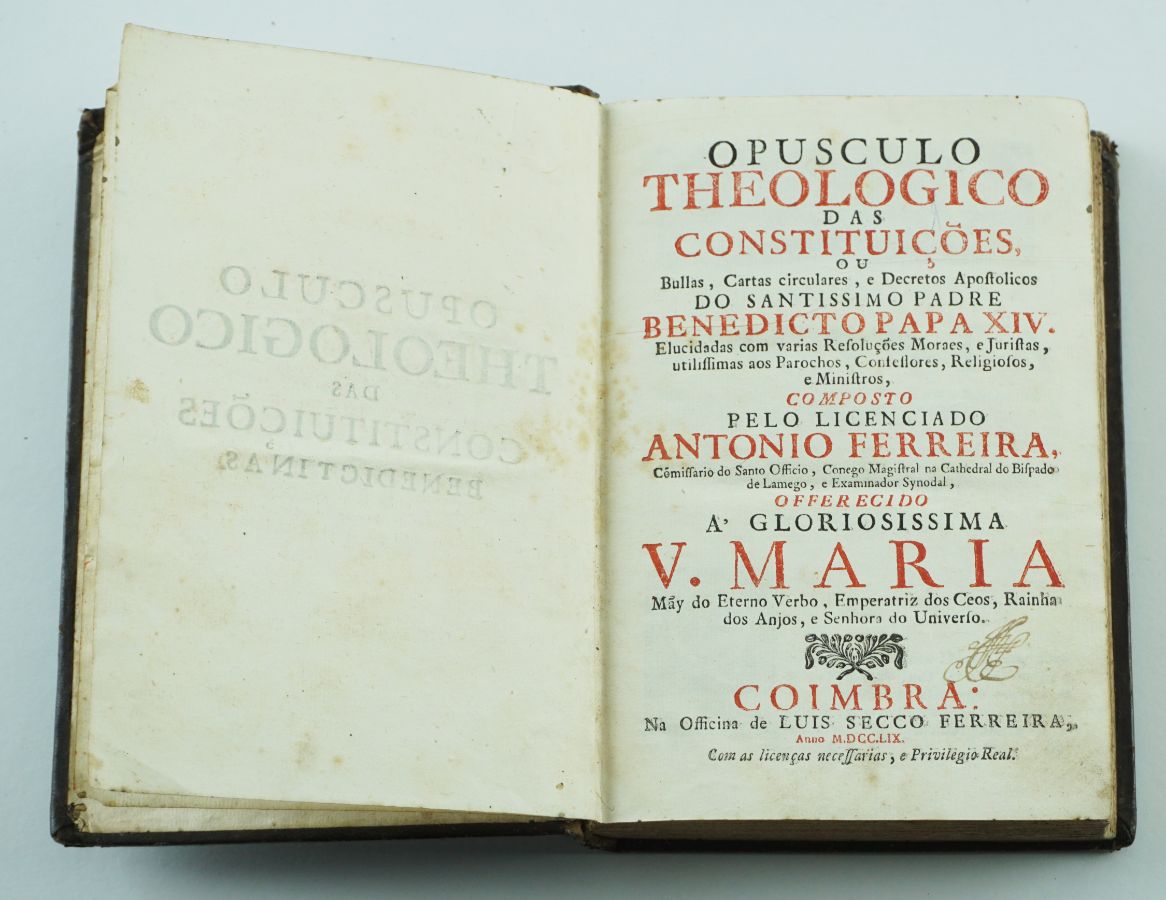 OPUSCULO
THEOLOGICO
DAS
CONSTITUIÇÕES
BENEDICTINAS.
OPUSCULO
THEOLOGICO
DAS
CONSTITUIÇÕES,
OU
Bullas, Cartas circulares, e Decretos Apoſtolicos
DO SANTISSIMO PADRE
BENEDICTO PAPA XIV.
Elucidadas com varias Reſoluções Moraes, e Juriſtas,
utiliſſimas aos Parochos, Confeſſores, Religioſos,
e Miniſtros,
COMPOSTO
PELO LICENCIADO
ANTONIO FERREIRA,
Cõmiſſario do Santo Officio, Conego Magiſtral na Cathedral do Biſpado
de Lamego, e Examinador Synodal,
OFFERECIDO
A' GLORIOSISSIMA
V. MARIA
Mãy do Eterno Verbo, Emperatriz dos Ceos, Rainha
dos Anjos, e Senhora do Univerſo.
COIMBRA:
Na Officina de LUIS SECCO FERREIRA,
Anno M.DCC.LIX.
Com as licenças neceſſarias, e Privilegio Real.